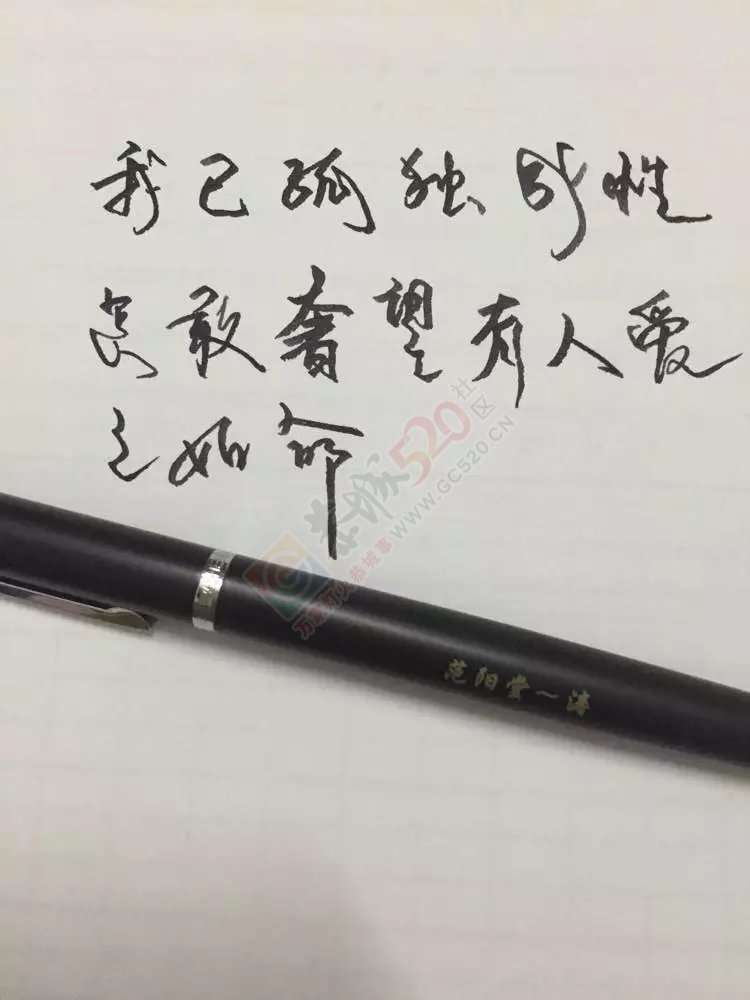 我已孤独成性
怎敢奢望有人爱
之如命
恭城520社区
WWW.GC520.CN
万家灯火恭城事
范阳堂～涛